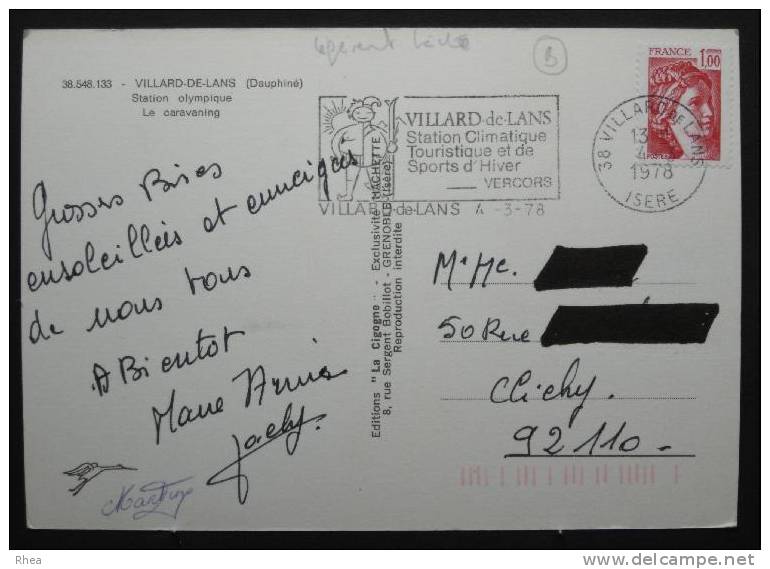 38.548.133 - VILLARD-DE-LANS (Dauphiné)
Station olympique
Le caravaning
B
FRANCE 1,00
38 VILLARD DE LANS
13
4-3
1978
ISERE
VILLARD-de-LANS
Station Climatique
Touristique et de
Sports d'Hiver
VERCORS
VILLARD-de-LANS 4 -3-78
Grosses Bises
ensoleillées et enneigées
de nous tous
A Bientot
Marie Annie
Jacky.
Martine
Editions "La Cigogne" - Exclusivité HACHETTE
8, rue Sergent Bobillot - GRENOBLE (Isère)
Reproduction interdite
Mr Me.
50 Rue
Clichy
92110
Rhea
www.delcampe.net